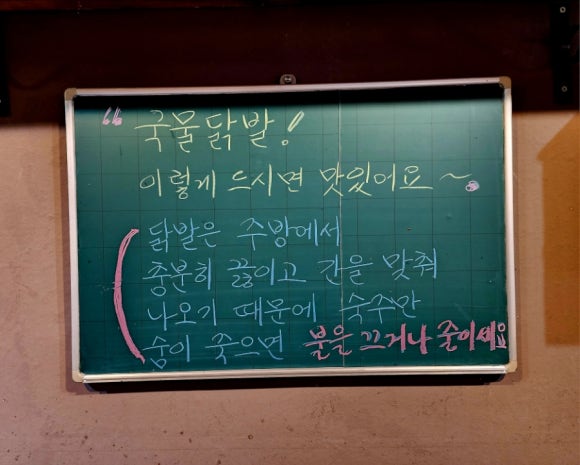 “ 국물닭발!
이렇게 드시면 맛있어요~
닭발은 주방에서
충분히 끓이고 간을 맞춰
나오기 때문에 숙주만
숨이 죽으면 불을 끄거나 줄이세요